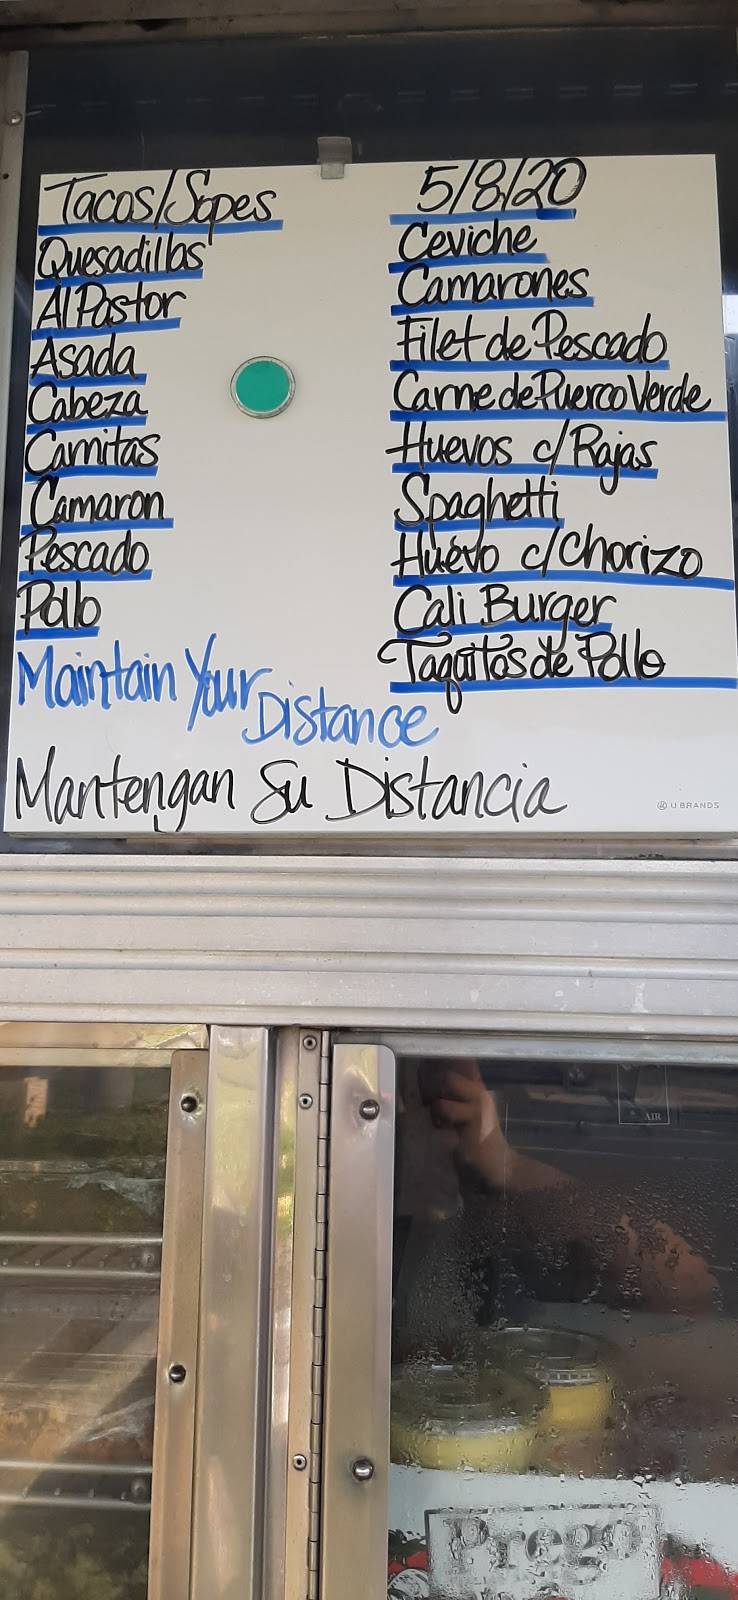 Tacos/Sopes
Quesadillas
Al Pastor
Asada
Cabeza
Carnitas
Camaron
Pescado
Pollo
5/8/20
Ceviche
Camarones
Filet de Pescado
Carne de Puerco Verde
Huevos c/Rajas
Spaghetti
Huevo c/Chorizo
Cali Burger
Taquitos de Pollo
Maintain Your
Distance
Mantengan Su Distancia
U BRANDS
AIR
Prego